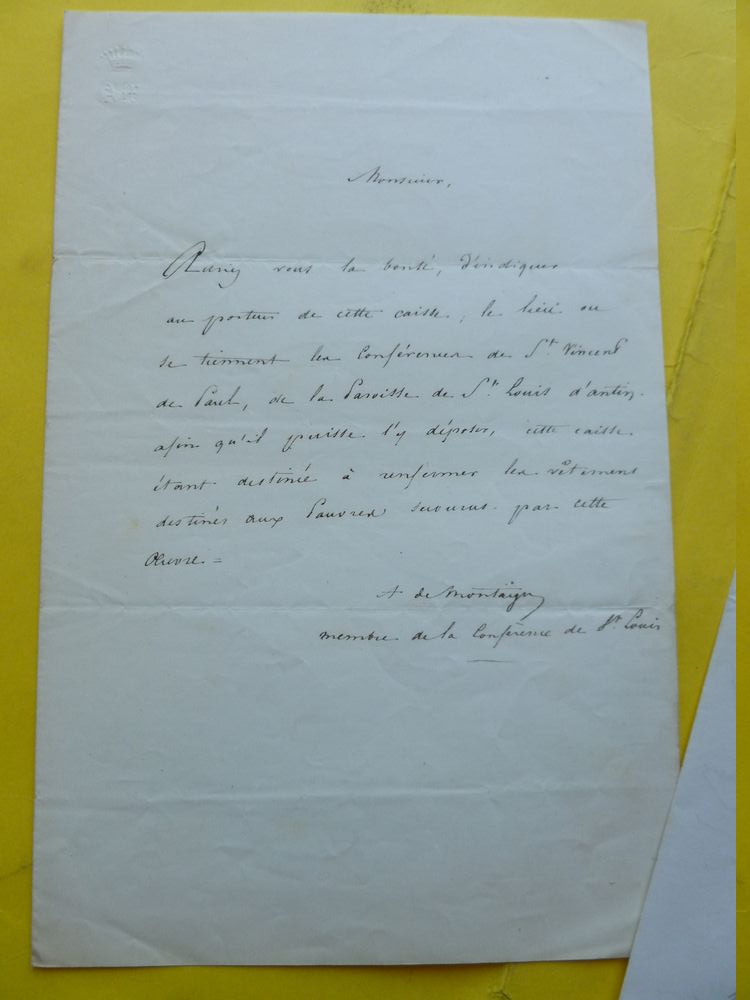 Monsieur,
vous la bonté, d'indiquer
au porteur de cette caisse, le lieu ou
se tiennent les Conférences de St. Vincent
de Paul, de la Paroisse de St. Louis d'antin.
afin qu'il puisse l'y déposer, cette caisse
étant destinée à renfermer les vêtement
destinés aux Pauvres secourus par cette
Oeuvre =
A de Montaigu
membre de la Conférence de St. Louis